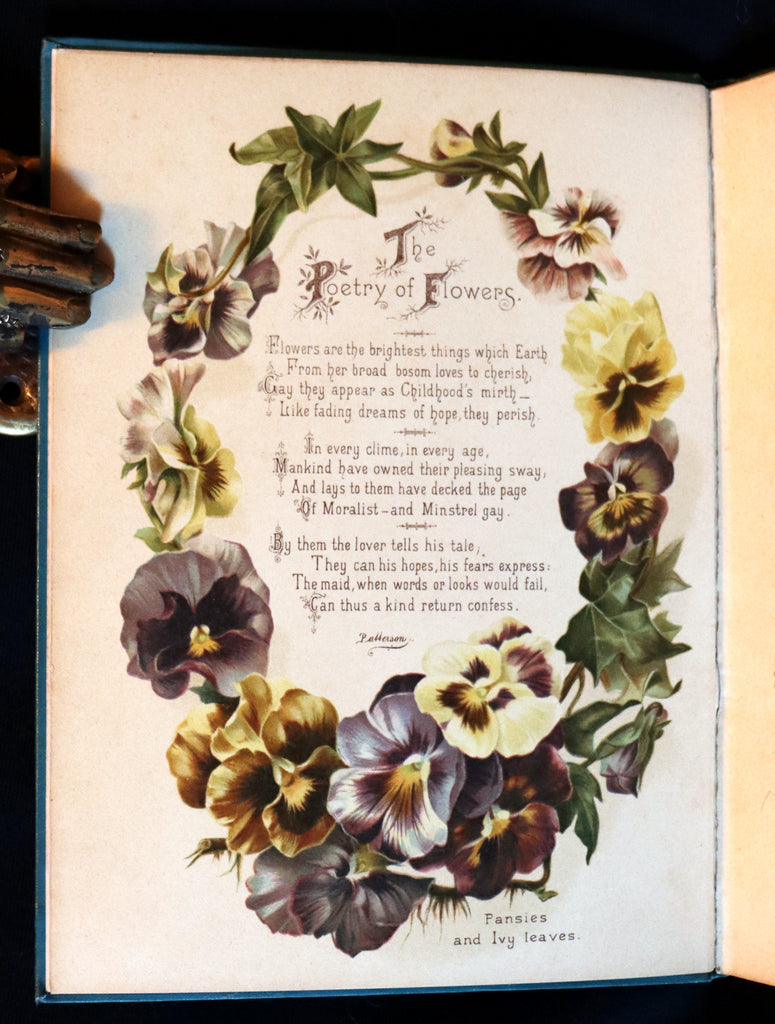 The
Poetry of Flowers.
Flowers are the brightest things which Earth
From her broad bosom loves to cherish,
Gay they appear as Childhood's mirth—
Like fading dreams of hope, they perish.
In every clime, in every age,
Mankind have owned their pleasing sway,
And lays to them have decked the page
Of Moralist—and Minstrel gay.
By them the lover tells his tale,
They can his hopes, his fears express:
The maid, when words or looks would fail,
Can thus a kind return confess.
Patterson.
Pansies
and Ivy leaves.